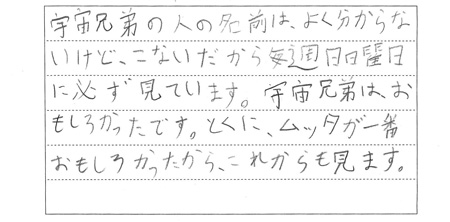 宇宙兄弟の人の名前は、よく分からな
いけど、こないだから毎週日曜日
に必ず見ています。宇宙兄弟は、お
もしろかったです。とくに、ムッタが一番
おもしろかったから、これからも見ます。